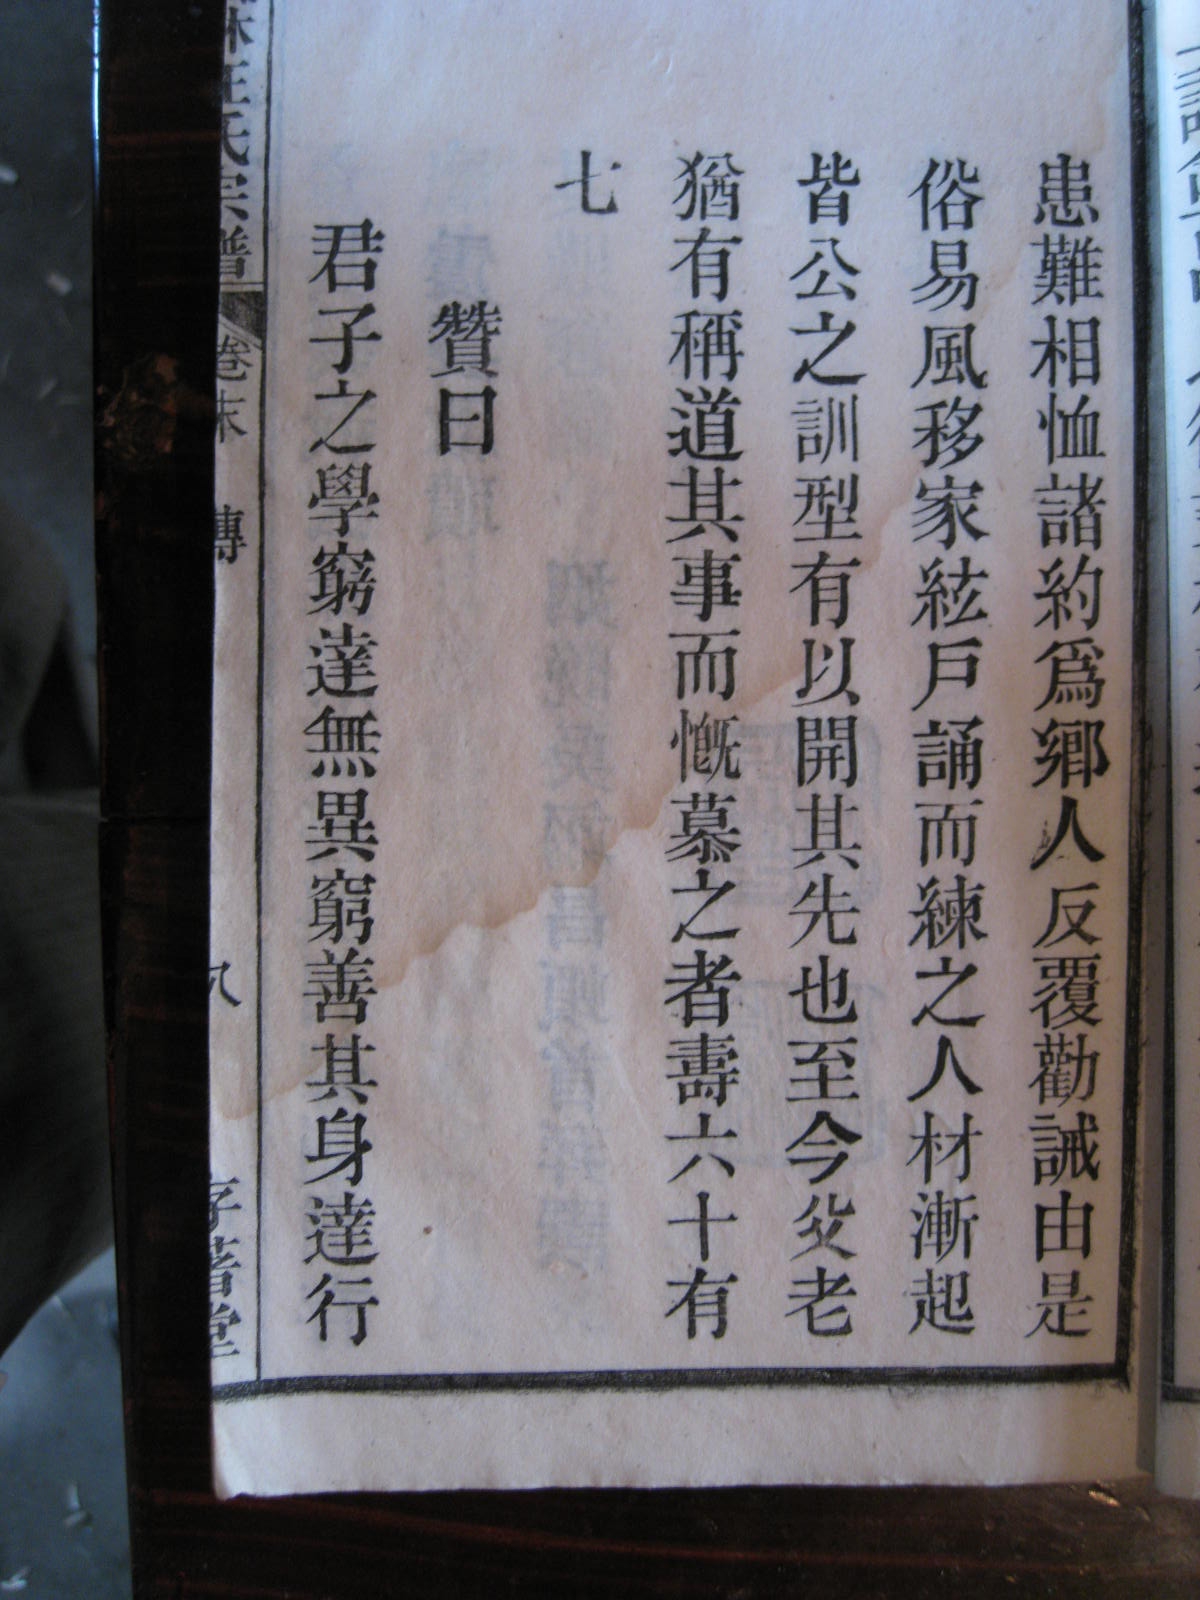 患難相恤諸約爲鄉人反覆勸誡由是
俗易風移家絃戶誦而練之人材漸起
皆公之訓型有以開其先也至今父老
猶有稱道其事而慨慕之者壽六十有
七
贊曰
君子之學窮達無異窮善其身達行
王氏宗譜
卷末
傳
八